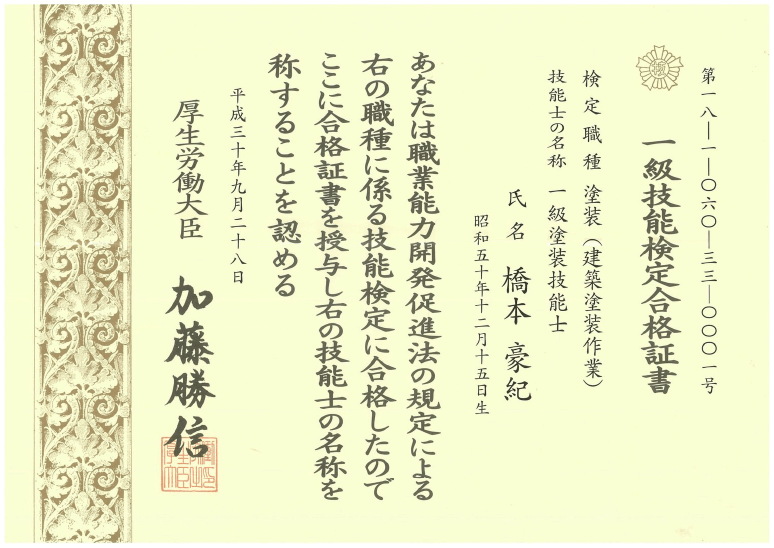 第一八―一―〇六〇―三三―〇〇〇一号
一級技能検定合格証書
検定職種 塗装（建築塗装作業）
技能士の名称 一級塗装技能士
氏名 橋本豪紀
昭和五十年十二月十五日生
あなたは職業能力開発促進法の規定による
右の職種に係る技能検定に合格したので
ここに合格証書を授与し右の技能士の名称を
称することを認める
平成三十年九月二十八日
厚生労働大臣 加藤勝信